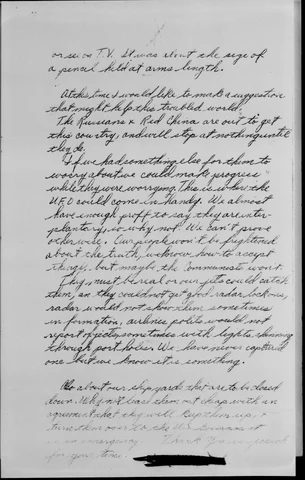 or seen T.V. It was about the size of
a pencil held at arms length.
At this time I would like to make a suggestion
that might help this troubled world.
The Russians & Red China are out to get
this country, and will stop at nothing until
they do.
If we had something else for them to
worry about we could make progress
while they were worrying. This is where the
UFO could come in handy. We almost
have enough proff to say they are inter-
plantary, so why not. We can't prove
otherwise. Our people won't be frightened
about the truth, we know how to accept
things, but maybe the Communists won't.
They must be real or our jets could catch
them, or they could not get good radar lockons,
radar would not show them sometimes
in formation, airlines polits would not
report ojects some times with lights shining
through port holes. We have never captured
one but we know it is something.
Also about our shipyards that are to be closed
down. Why not lease them out cheap with an
agreement that they will keep them up, &
turn them over to the U.S. Government
in an emergency. Thank you very much
for your time.